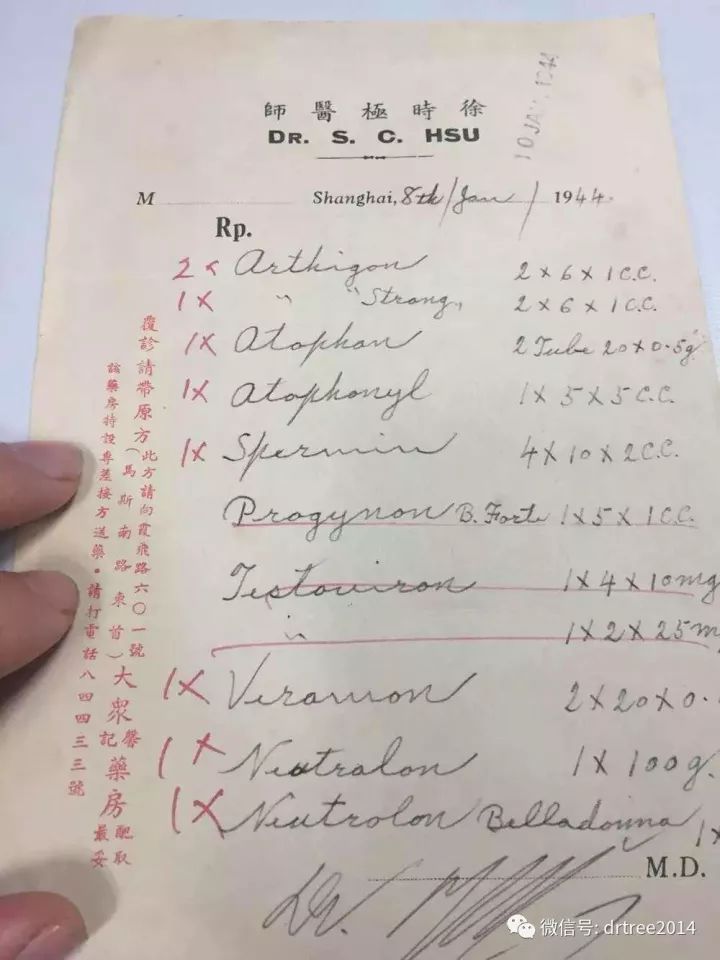 師醫極時徐
DR. S. C. HSU
10 JAN. 1944
M Shanghai, 8th/Jan/1944.
Rp.
2 x Arthigon 2 x 6 x 1 C.C.
1 x " "Strong" 2 x 6 x 1 C.C.
1 x Atophan 2 Tube 20 x 0.5g
1 x Atophanyl 1 x 5 x 5 C.C.
1 x Spermin 4 x 10 x 2 C.C.
Progynon B. Forte 1 x 5 x 1 C.C.
Testoviron 1 x 4 x 10 mg
" 1 x 2 x 25 m
1 x Veramon 2 x 20 x 0.
1 x Neutralon 1 x 100 g.
1 x Neutrolon Belladonna 1 x
Dr.
M.D.
覆診請帶原方(此方請向霞飛路六〇一號
馬斯南路東首)大眾藥房配取最妥
馨記
該藥房特設專差接方送藥•請打電話八四四三三號
微信号: drtree2014